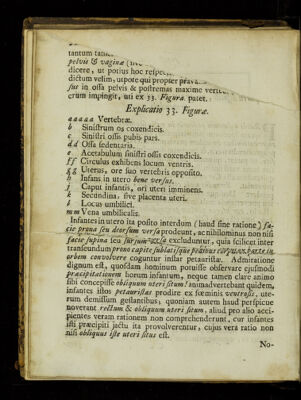 tantum tanti
pelvis & vaginæ (inv
dicere, ut potius hoc respect
dictum velim, utpote qui propter prava
sus in ossa pelvis & postremas maxime vertebr
crum impingit, uti ex 33. Figura patet.
Explicatio 33. Figuræ.
a a a a a Vertebræ.
b Sinistrum os coxendicis.
c Sinistri ossis pubis pars.
d d Ossa sedentaria.
e Acetabulum sinistri ossis coxendicis.
f f Circulus exhibens locum ventris.
g g Uterus, ore suo vertebris opposito.
h Infans in utero bene versus.
j Caput infantis, ori uteri imminens.
k Secundina, sive placenta uteri.
l Locus umbilici.
m m Vena umbilicalis.
Infantes in utero ita posito interdum (haud sine ratione) fa-
cie prona seu deorsum versa prodeunt, ac nihilominus non nisi
facie supina seu sursum versa excluduntur, quia scilicet inter
transeundum prono capite sublatisque pedibus corpus ex parte in
orbem convolvere coguntur instar petauristæ. Admiratione
dignum est, quosdam hominum potuisse observare ejusmodi
præcipitationem horum infantum, neque tamen clare animo
sibi concepisse obliquum uteri situm: animadvertebant quidem,
infantes istos petauristas prodire ex fœminis ventrosis, ute-
rum demissum gestantibus; quoniam autem haud perspicue
noverant rectum & obliquum uteri situm, aliud pro alio acci-
pientes veram rationem non comprehenderunt, cur infantes
isti præcipiti jactu ita provolverentur, cujus vera ratio non
nisi obliquus iste uteri situs est.
No-